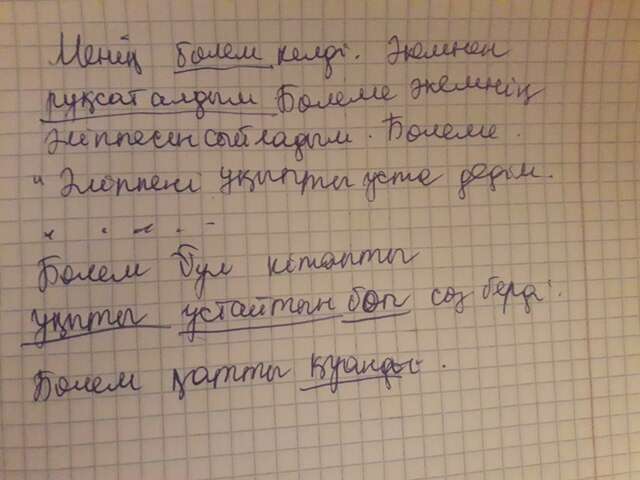 Менің бөлем келді. Әкемнен
рұқсат алдым Бөлеме әкемнің
Әліппесін сыйладым. Бөлеме.
" Әліппені ұқыпты ұста дедім.
Бөлем бұл кітапты
ұқыпты ұстайтын боп сөз берді.
Бөлем қатты қуанды.